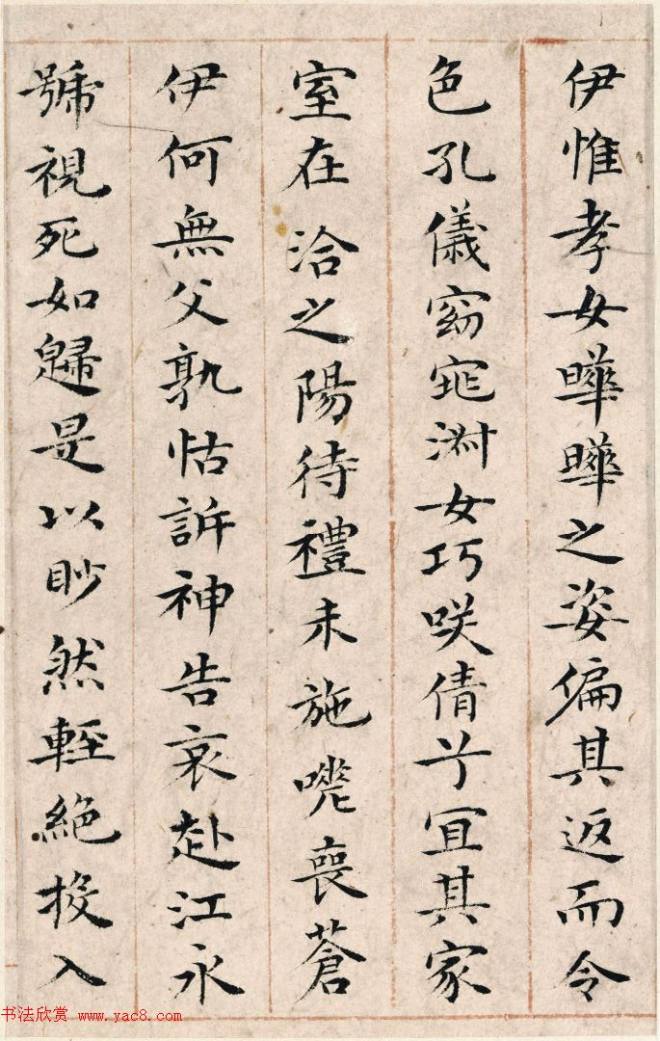 伊惟孝女曄曄之姿偏其返而令
色孔儀窈窕淑女巧咲倩兮宜其家
室在洽之陽待禮未施嗟喪蒼
伊何無父孰怙訴神告哀赴江永
號視死如歸是以眇然輕絕投入
书法欣赏 www.yac8.com